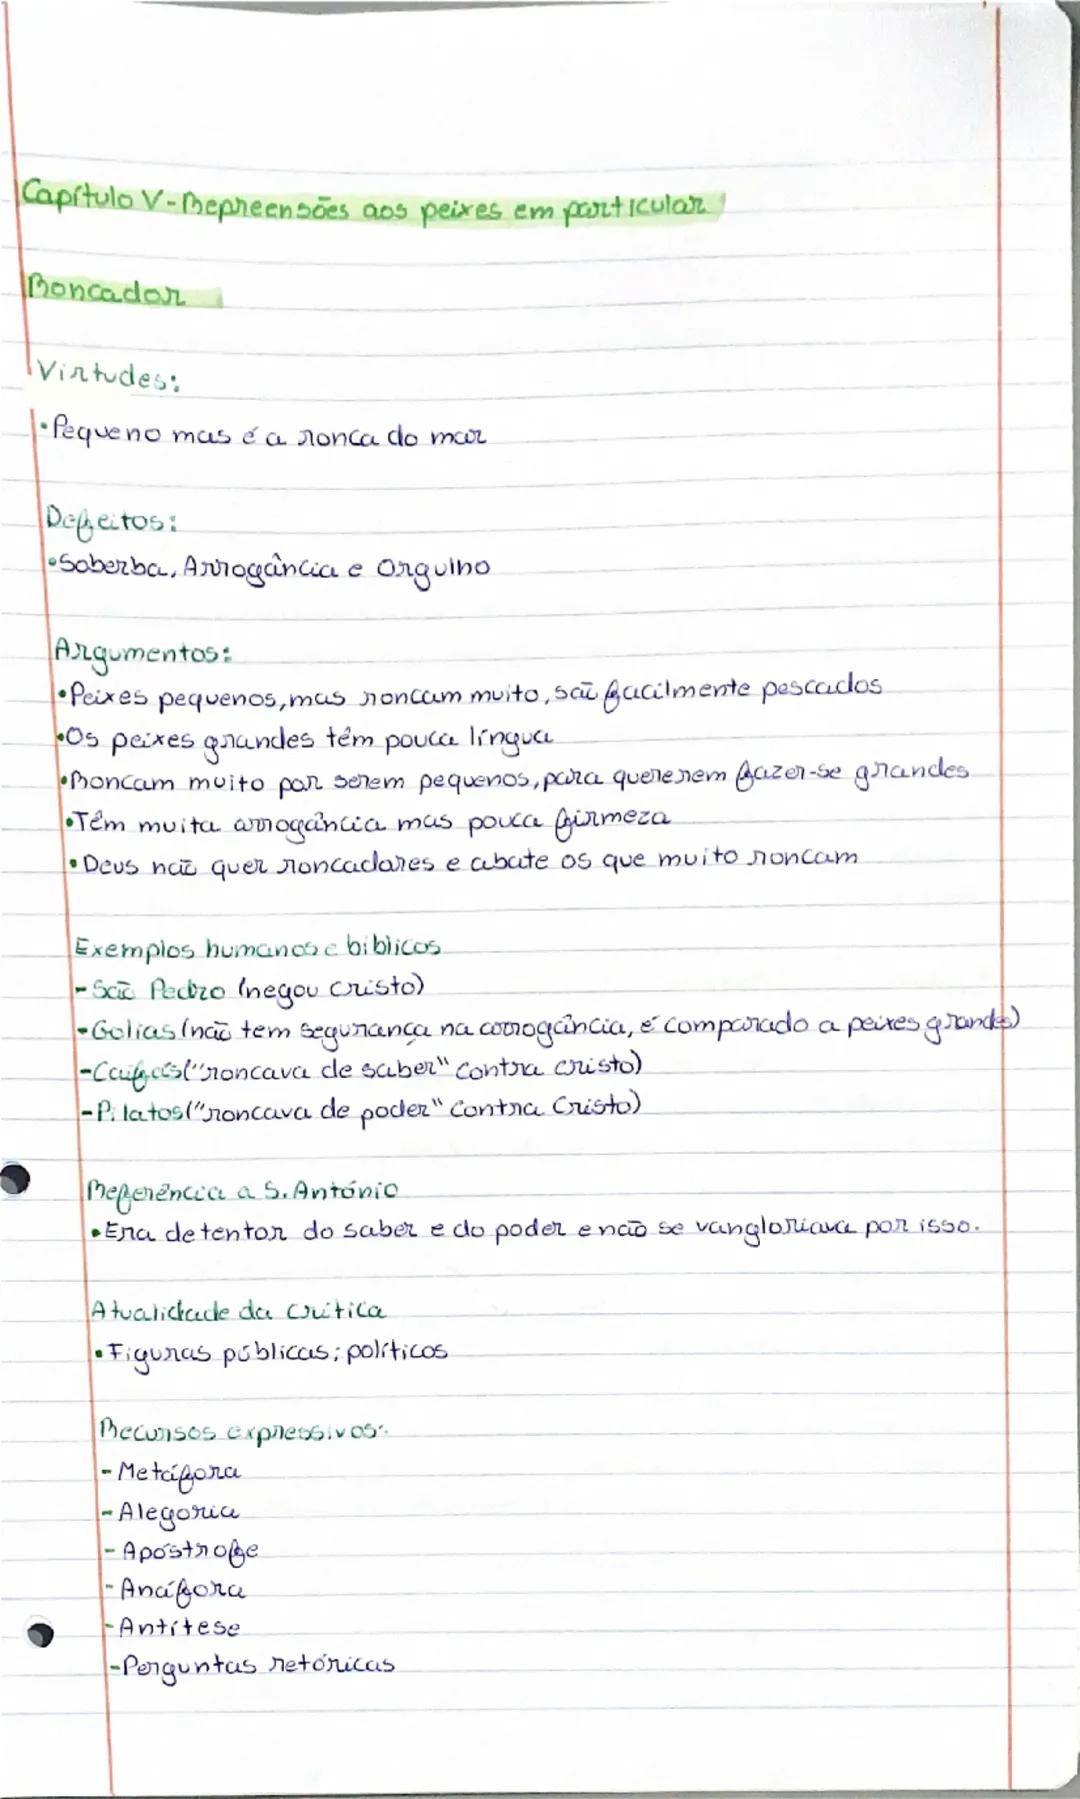 Capítulo V - Repreensões aos peixes em particular
Roncador
Virtudes:
•Pequeno mas é a ronca do mar
Defeitos:
•Soberba, Arrogância e Orgulho
Argumentos:
•Peixes pequenos, mas roncam muito, são facilmente pescados
•Os peixes grandes têm pouca língua
•Roncam muito por serem pequenos, para quererem fazer-se grandes
•Têm muita arrogância mas pouca firmeza
•Deus não quer roncadores e abate os que muito roncam
Exemplos humanos e bíblicos
-São Pedro (negou Cristo)
-Golias (não tem segurança na arrogância, é comparado a peixes grandes)
-Caifás ("roncava de saber" contra cristo)
-Pilatos ("roncava de poder" contra Cristo)
Referência a S. António
•Era detentor do saber e do poder e não se vangloriava por isso.
Atualidade da crítica
•Figuras públicas; políticos
Recursos expressivos:
-Metáfora
-Alegoria
-Apóstrofe
-Anáfora
-Antítese
-Perguntas retóricas